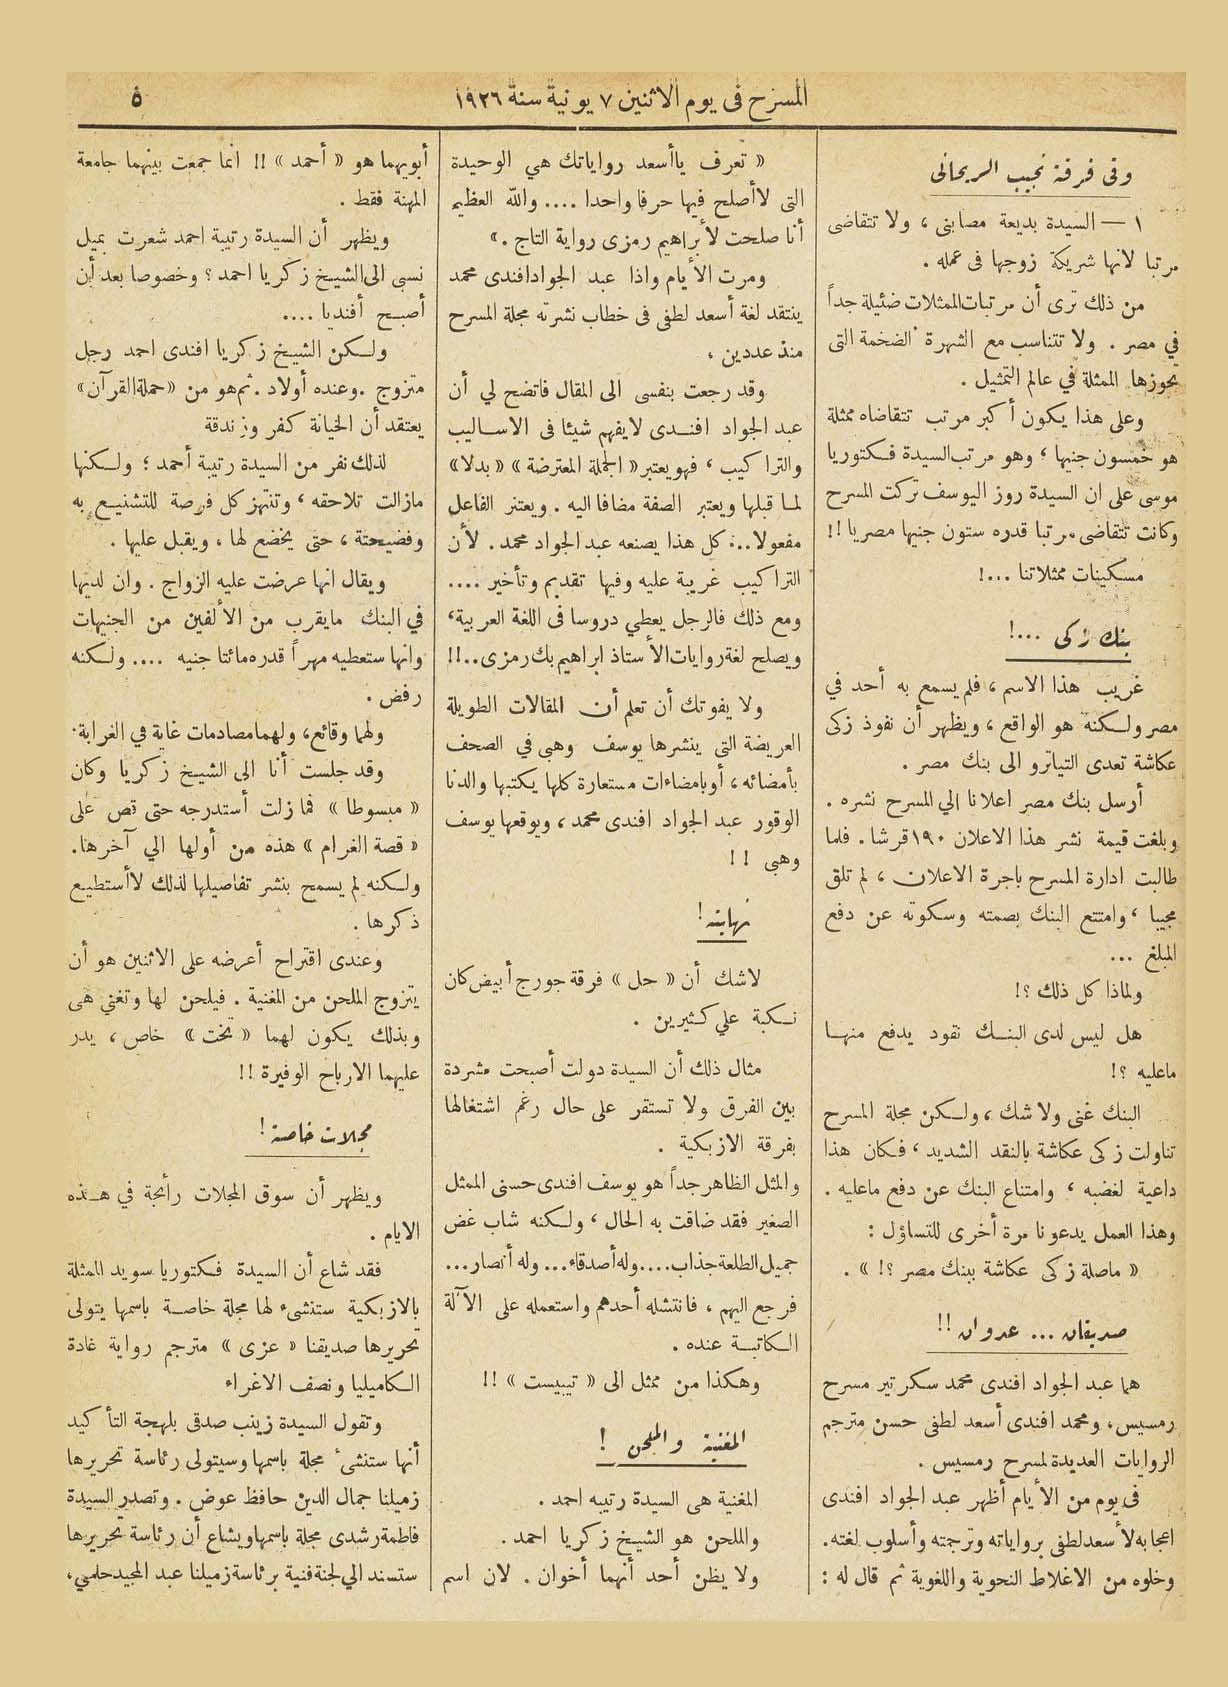 المسرح فى يوم الاثنين ٧ يونية سنة ١٩٢٦
٥
وفى فرقة نجيب الريحانى
١ — السيدة بديعة مصابنى ، ولا تتقاضى
مرتبا لانها شريكة زوجها فى عمله .
من ذلك ترى أن مرتبات الممثلات ضئيلة جداً
في مصر . ولا تتناسب مع الشهرة الضخمة التى
يحوزها الممثلة في عالم التمثيل .
وعلى هذا يكون أكبر مرتب تتقاضاه ممثلة
هو خمسون جنيها ، وهو مرتب السيدة فكتوريا
موسى على ان السيدة روز اليوسف تركت المسرح
وكانت تتقاضى مرتبا قدره ستون جنيها مصريا !!
مسكينات ممثلاتنا ...!
بنك زكى ...!
غريب هذا الاسم ، فلم يسمع به أحد في
مصر ولكنه هو الواقع ، ويظهر أن نفوذ زكى
عكاشة تعدى التياترو الى بنك مصر .
أرسل بنك مصر اعلانا الي المسرح نشره .
وبلغت قيمة نشر هذا الاعلان ١٩٠ قرشا . فلما
طالبت ادارة المسرح باجرة الاعلان ، لم تلق
مجيبا ، وامتتع البنك بصمته وسكوته عن دفع
المبلغ ...
ولماذا كل ذلك ؟!
هل ليس لدى البنك نقود يدفع منها
ماعليه ؟!
البنك غنى ولا شك ، ولكن مجلة المسرح
تناولت زكى عكاشة بالنقد الشديد ، فكان هذا
داعية لغضبه ، وامتناع البنك عن دفع ماعليه .
وهذا العمل يدعونا مرة أخرى للتساؤل :
« ماصلة زكى عكاشة ببنك مصر ؟! » .
صديقان ... عدوان !!
هما عبد الجواد افندى محمد سكرتير مسرح
رمسيس ، ومحمد افندى أسعد لطفى حسن مترجم
الروايات العديدة لمسرح رمسيس .
فى يوم من الأيام أظهر عبد الجواد افندى
اعجابه لأسعد لطفى برواياته وترجمته وأسلوب لغته.
وخلوه من الاغلاط النحوية واللغوية ثم قال له :
« تعرف ياأسعد رواياتك هي الوحيدة
التى لاأصلح فيها حرفا واحدا .... والله العظيم
أنا صلحت لأبراهيم رمزى رواية التاج . »
ومرت الأيام واذا عبد الجواد افندى محمد
ينتقد لغة أسعد لطفى فى خطاب نشرته مجلة المسرح
منذ عددين ،
وقد رجعت بنفسى الى المقال فاتضح لي أن
عبد الجواد افندى لايفهم شيئا فى الاساليب
والتراكيب ، فهو يعتبر « الجملة المعترضة » « بدلا »
لما قبلها ويعتبر الصفة مضافا اليه . ويعتبر الفاعل
مفعولا... كل هذا يصنعه عبد الجواد محمد . لأن
التراكيب غريبة عليه وفيها تقديم وتأخير ....
ومع ذلك فالرجل يعطي دروسا فى اللغة العربية ،
ويصلح لغة روايات الأستاذ ابراهيم بك رمزى..!!
ولا يفوتك أن تعلم أن المقالات الطويلة
العريضة التى ينشرها يوسف وهبى في الصحف
بأمضائه ، أو بامضاءات مستعارة كلها يكتبها والدنا
الوقور عبد الجواد افندى محمد ، ويوقعها يوسف
وهبى !!
نهايته !
لاشك أن « حل » فرقة جورج أبيض كان
نكبة علي كثيرين .
مثال ذلك أن السيدة دولت أصبحت مشردة
بين الفرق ولا تستقر على حال رغم اشتغالها
بفرقة الازبكية .
والمثل الظاهر جداً هو يوسف افندى حسنى الممثل
الصغير فقد ضاقت به الحال ، ولكنه شاب غض
جميل الطلعة جذاب .... وله أصدقاء ... وله أنصار ...
فرجع اليهم ، فانتشله أحدهم واستعمله على الآلة
الكاتبة عنده .
وهكذا من ممثل الى « تيبيست » !!
المغنية والملحن !
المغنية هى السيدة رتيبه احمد .
والملحن هو الشيخ زكريا احمد .
ولا يظن أحد أنهما أخوان . لان اسم
أبويهما هو « أحمد » !! انما جمعت بينهما جامعة
المهنة فقط .
ويظهر أن السيدة رتيبة احمد شعرت بميل
نسبى الى الشيخ زكريا احمد ؟ وخصوصا بعد أن
أصبح أفنديا ....
ولكن الشيخ زكريا افندى احمد رجل
متزوج . وعنده أولاد . ثم هو من « حملة القرآن »
يعتقد أن الخيانة كفر وزندقة
لذلك نفر من السيدة رتيبة أحمد ؛ ولكنها
مازالت تلاحقه ، وتنتهز كل فرصة للتشنيع به
وفضيحتة ، حتى يخضع لها ، ويقبل عليها .
ويقال انها عرضت عليه الزواج . وان لديها
في البنك مايقرب من الألفين من الجنيهات
وانها ستعطيه مهراً قدره مائتا جنيه .... ولكنه
رفض .
ولهما وقائع ، ولهما مصادمات غاية في الغرابة .
وقد جلست أنا الى الشيخ زكريا وكان
« مبسوطا » فما زلت أستدرجه حتى قص على
« قصة الغرام » هذه من أولها الي آخرها .
ولكنه لم يسمح بنشر تفاصيلها لذلك لاأستطيع
ذكرها .
وعندى اقتراح أعرضه على الاثنين هو أن
يتزوج الملحن من المغنية . فيلحن لها وتغني هى
وبذلك يكون لهما « تخت » خاص ، يدر
عليهما الارباح الوفيرة !!
مجلات خاصة !
ويظهر أن سوق المجلات رائجة في هذه
الايام .
فقد شاع أن السيدة فكتوريا سويد الممثلة
بالازبكية ستنشىء لها مجلة خاصة باسمها يتولى
تحريرها صديقنا « عزى » مترجم رواية غادة
الكاميليا ونصف الاغراء
وتقول السيدة زينب صدقى بلهجة التأكيد
أنها ستنشىء مجلة باسمها وسيتولى رئاسة تحريرها
زميلنا جمال الدين حافظ عوض . وتصدر السيدة
فاطمة رشدى مجلة باسمها ويشاع أن رئاسة تحريرها
ستسند الي لجنة فنية برئاسة زميلنا عبد المجيد حلمي ،